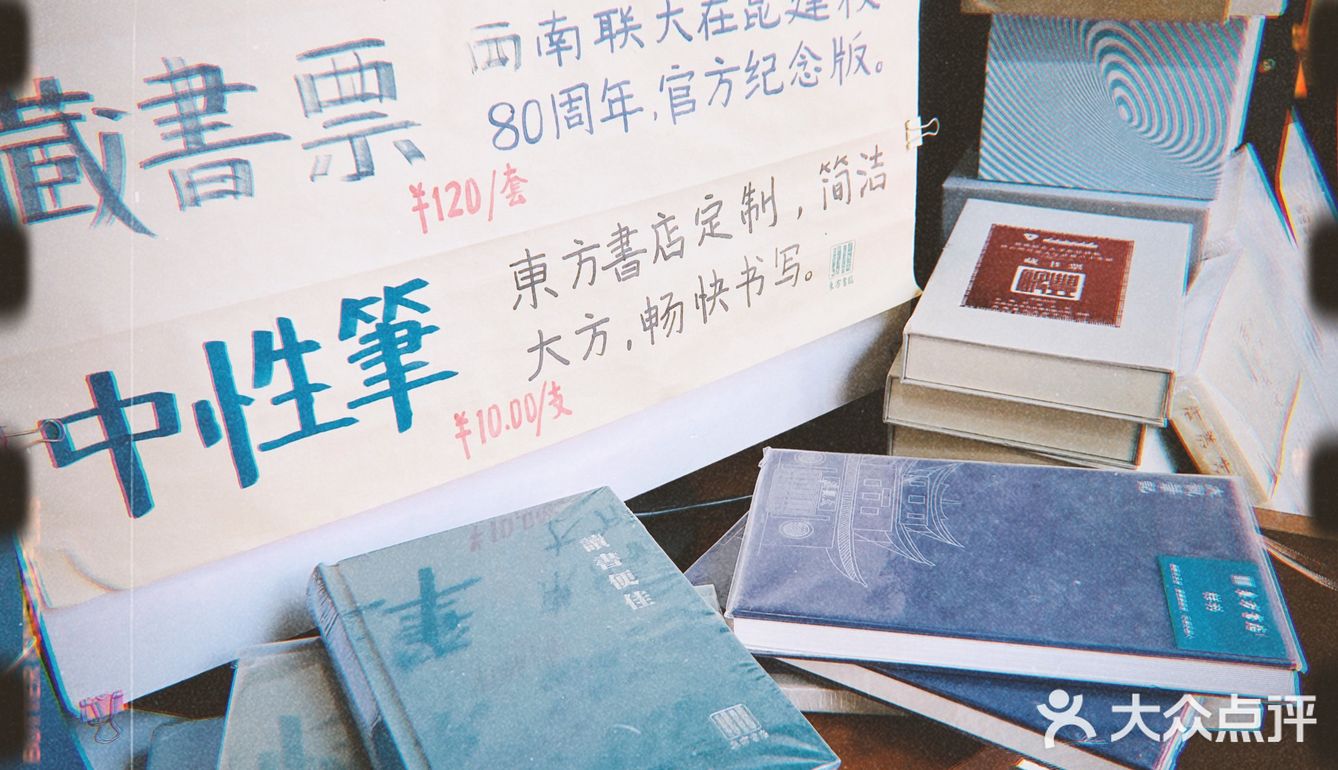 藏書票
西南联大在昆建校
80周年,官方纪念版。
¥120/套
中性筆
東方書店定制，简洁
大方,畅快书写。
¥10.00/支
東方書店
藏書票
讀書便佳
東方書店
大众点评